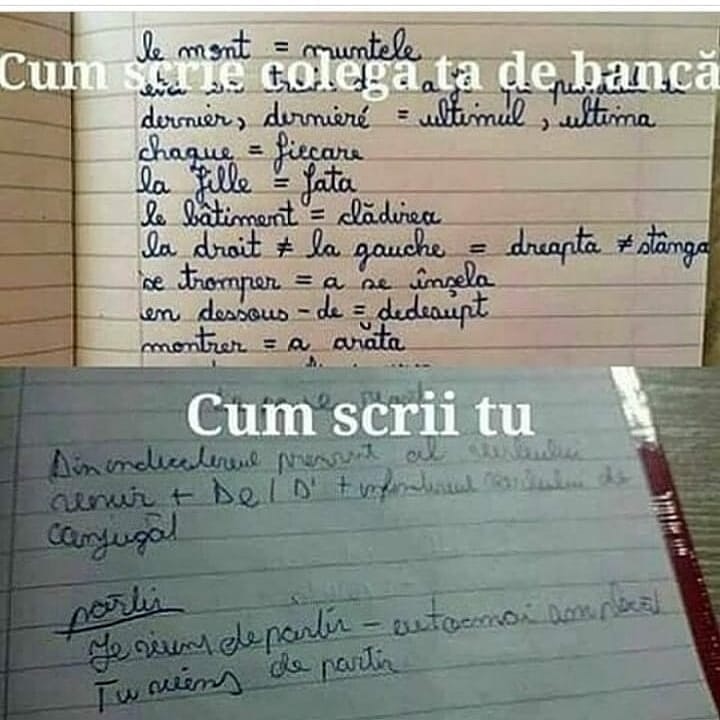 le mont = muntele
Cum scrie colega ta de bancă
dernier, dernieré = ultimul, ultima
chaque = fiecare
la fille = fata
le bâtiment = clădirea
la droit ≠ la gauche = dreapta ≠ stânga
se tromper = a se însela
en dessous - de = dedesupt
montrer = a arăta
Cum scrii tu
Din indicativul prezent al verbului
venir + De / D' + infinitivul verbului de
conjugat
partir
Je viens de partir - autocmai am plecat
Tu viens de partir